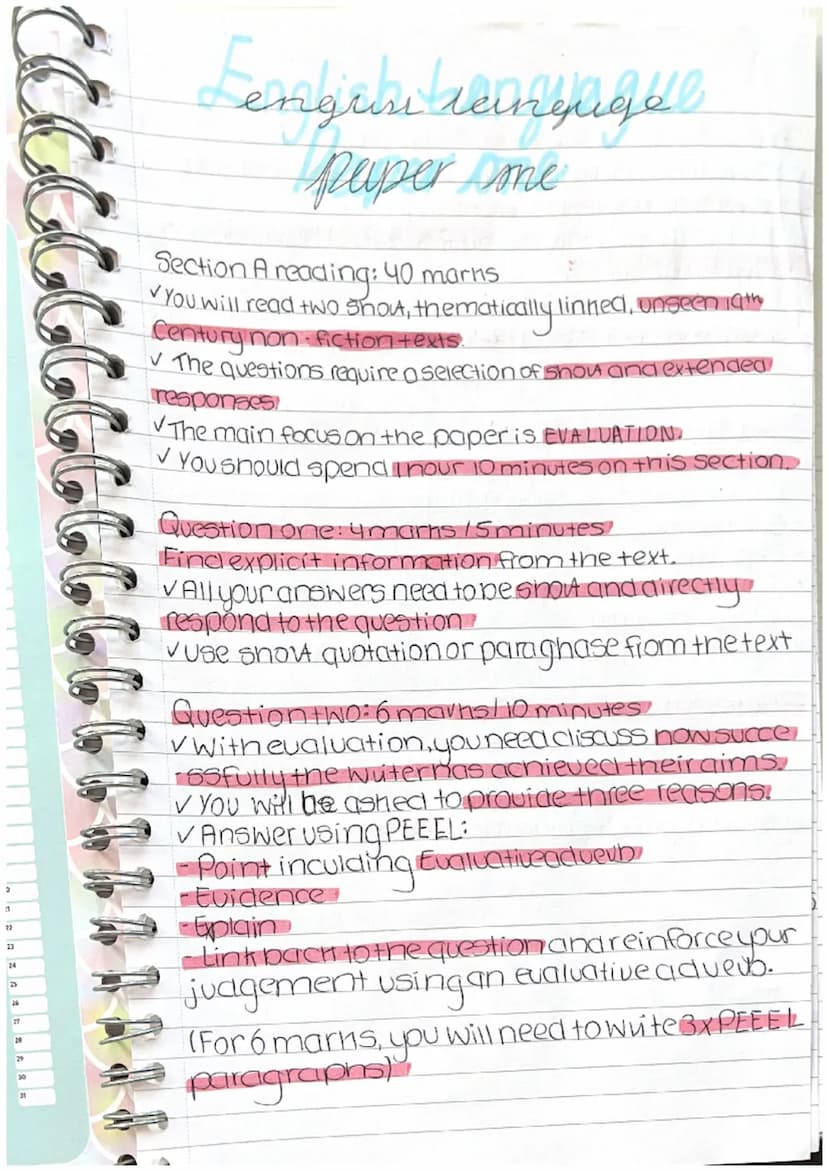 English Language
Paper one
Section A reading: 40 marks
✓ You will read two short, thematically linked, unseen 19th
Century non-fiction texts.
✓ The questions require a selection of short and extended
responses
✓ The main focus on the paper is EVALUATION.
✓ You should spend 1 hour 10 minutes on this section.
Question one: 4 marks / 5 minutes
Find explicit information from the text.
✓ All your answers need to be short and directly
respond to the question
✓ Use short quotation or paraghase from the text
Question two: 6 marks / 10 minutes
✓ With evaluation, you need discuss how succe
-ssfully the writer has achieved their aims.
✓ You will be asked to provide three reasons.
✓ Answer using PEEEL:
- Point inculding Evaluative adverb
- Evidence
- Explain
- Link back to the question and reinforce your
judgement using an evaluative adverb.
(For 6 marks, you will need to write 3x PEEEL
paragraphs)
21
22
23
24
25
26
27
28
29
30
31